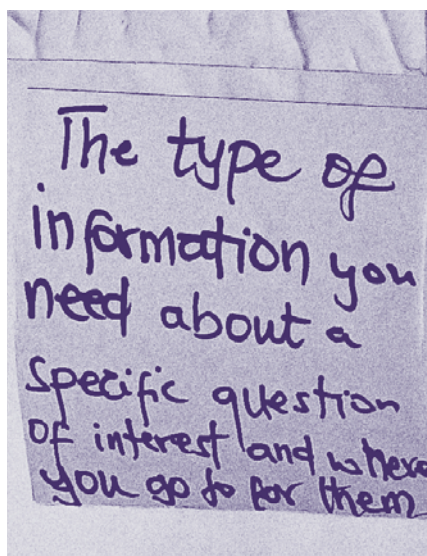 The type of
information you
need about a
specific question
of interest and where
you go to for them